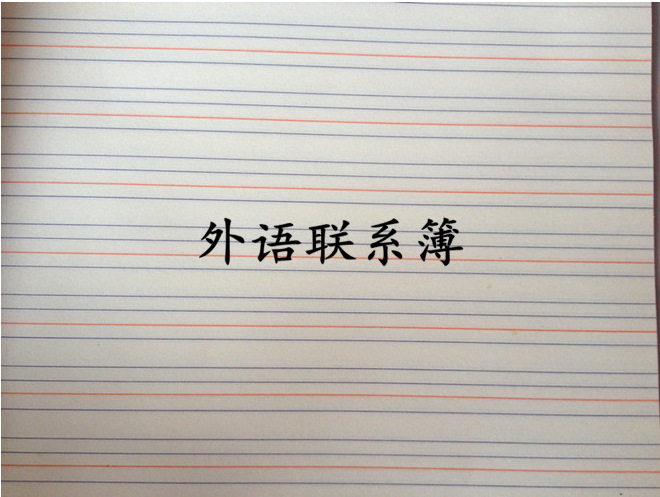 外语联系簿